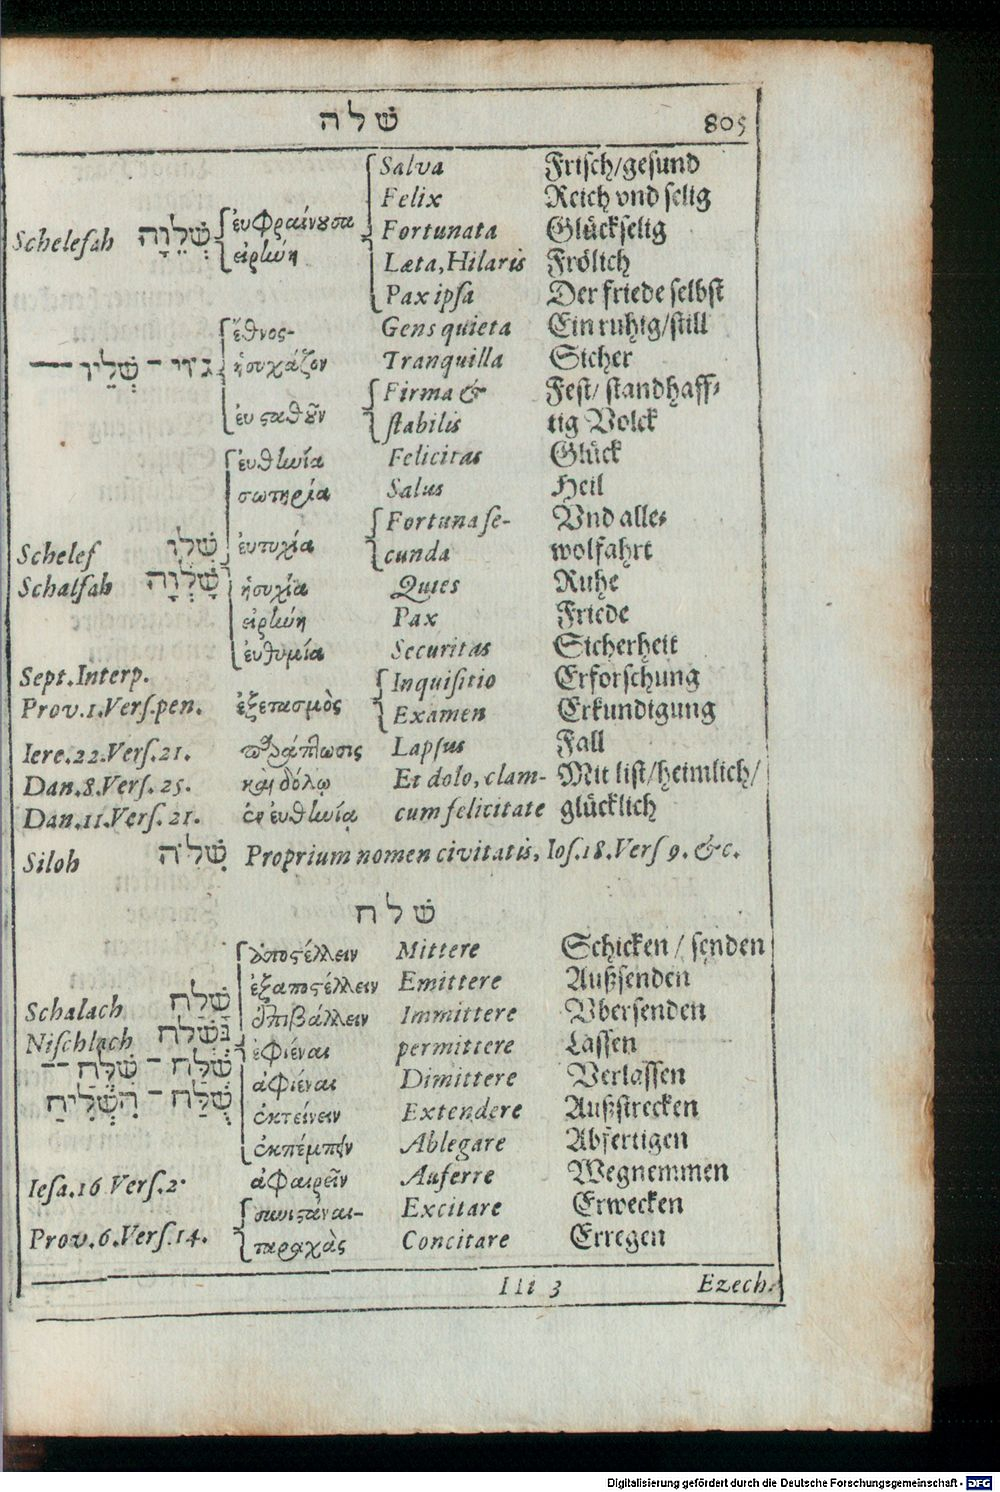 שׁלה 805
Salva Frisch/gesund
Felix Reich vnd selig
Schelefah שְׁלֵוָה ἐυφραίνȣσα Fortunata Glückselig
εἰρήνη Læta, Hilaris Frölich
Pax ipſa Der friede selbst
ἔθνος- Gens quieta Ein ruhig/still
גוי - שָׁלֵיו — ἡσυχάζον Tranquilla Sicher
Firma & Fest/ standhaff⸗
ἐυϛαθοῦν ſtabilis tig Volck
ἐυθηνία Felicitas Glück
σωτηρία Salus Heil
Fortuna ſe- Vnd alle⸗
Schelef שָׁלֵו ἐυτυχία cunda wolfahrt
Schalſah שַׁלְוָה ἡσυχία Quies Ruhe
εἰρήνη Pax Friede
ἐυθυμία Securitas Sicherheit
Sept. Interp. Inquiſitio Erforschung
Prov. 1. Verſ. pen. ἐξετασμὸς Examen Erkundigung
Iere. 22. Verſ. 21. παράπτωσις Lapſus Fall
Dan. 8. Verſ. 25. καὶ δόλῳ Et dolo, clam- Mit list/heimlich/
Dan. 11. Verſ. 21. ἐν ἐυθηνίᾳ cum felicitate glücklich
Siloh שִׁלֹה Proprium nomen civitatis, Ioſ. 18. Verſ 9. &c.
שׁלח
ἀποϛέλλειν Mittere Schicken / senden
ἐξαποϛέλλειν Emittere Außsenden
Schalach שָׁלַח ἐπιβάλλειν Immittere Vbersenden
Niſchlach נִשְׁלַח ἐφιέναι permittere Lassen
שִׁלַּח - שֻׁלַּח -- ἀφιέναι Dimittere Verlassen
שֻׁלַּח - הִשְׁלִיחַ ἐκτείνειν Extendere Außstrecken
ἐκπέμπειν Ablegare Abfertigen
Ieſa. 16 Verſ. 2. ἀφαιρεῖν Auferre Wegnemmen
συνιϛάναι- Excitare Erwecken
Prov. 6. Verſ. 14. ταραχὰς Concitare Erregen
Iii 3 Ezech.
Digitalisierung gefördert durch die Deutsche Forschungsgemeinschaft - DFG